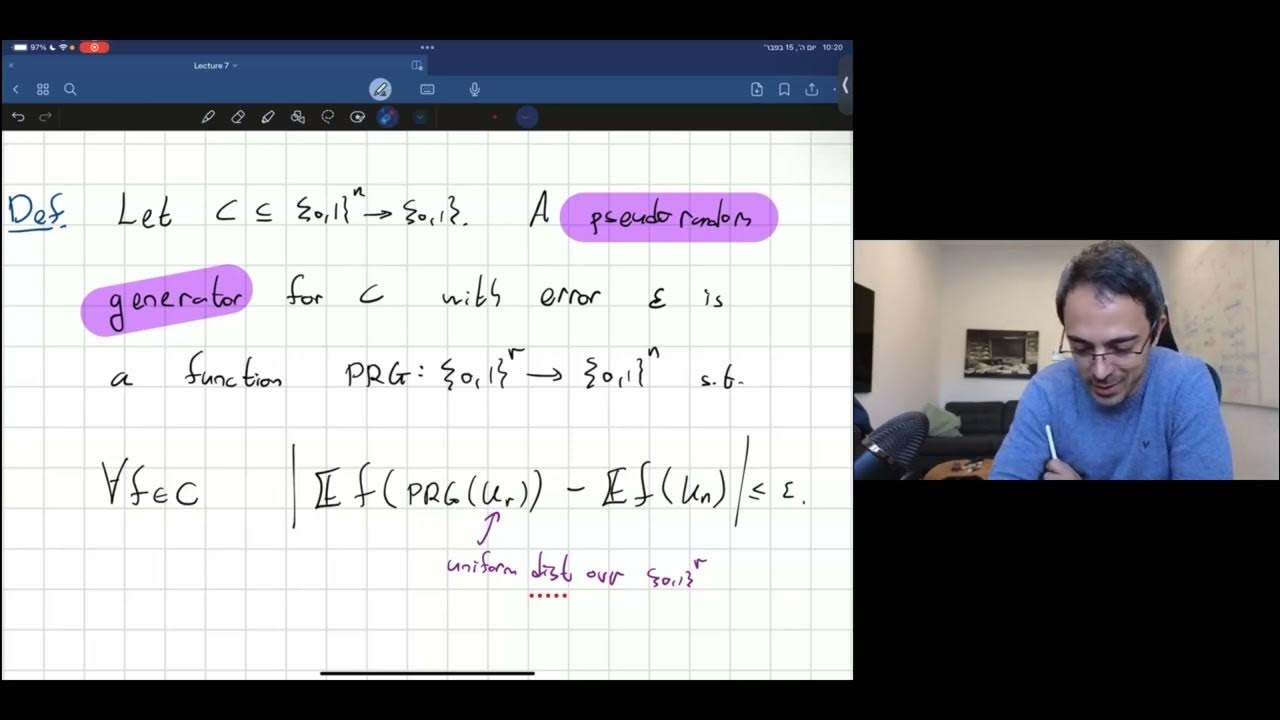 97%
10:20 יום ה׳, 15 בפבר׳
Lecture 7
Def. Let C ⊆ {0,1}ⁿ → {0,1}. A pseudorandom
generator for C with error ε is
a function PRG: {0,1}ʳ → {0,1}ⁿ s.t.
∀f∈C | 𝔼 f(PRG(Uᵣ)) − 𝔼 f(Uₙ) | ≤ ε.
uniform dist over {0,1}ʳ